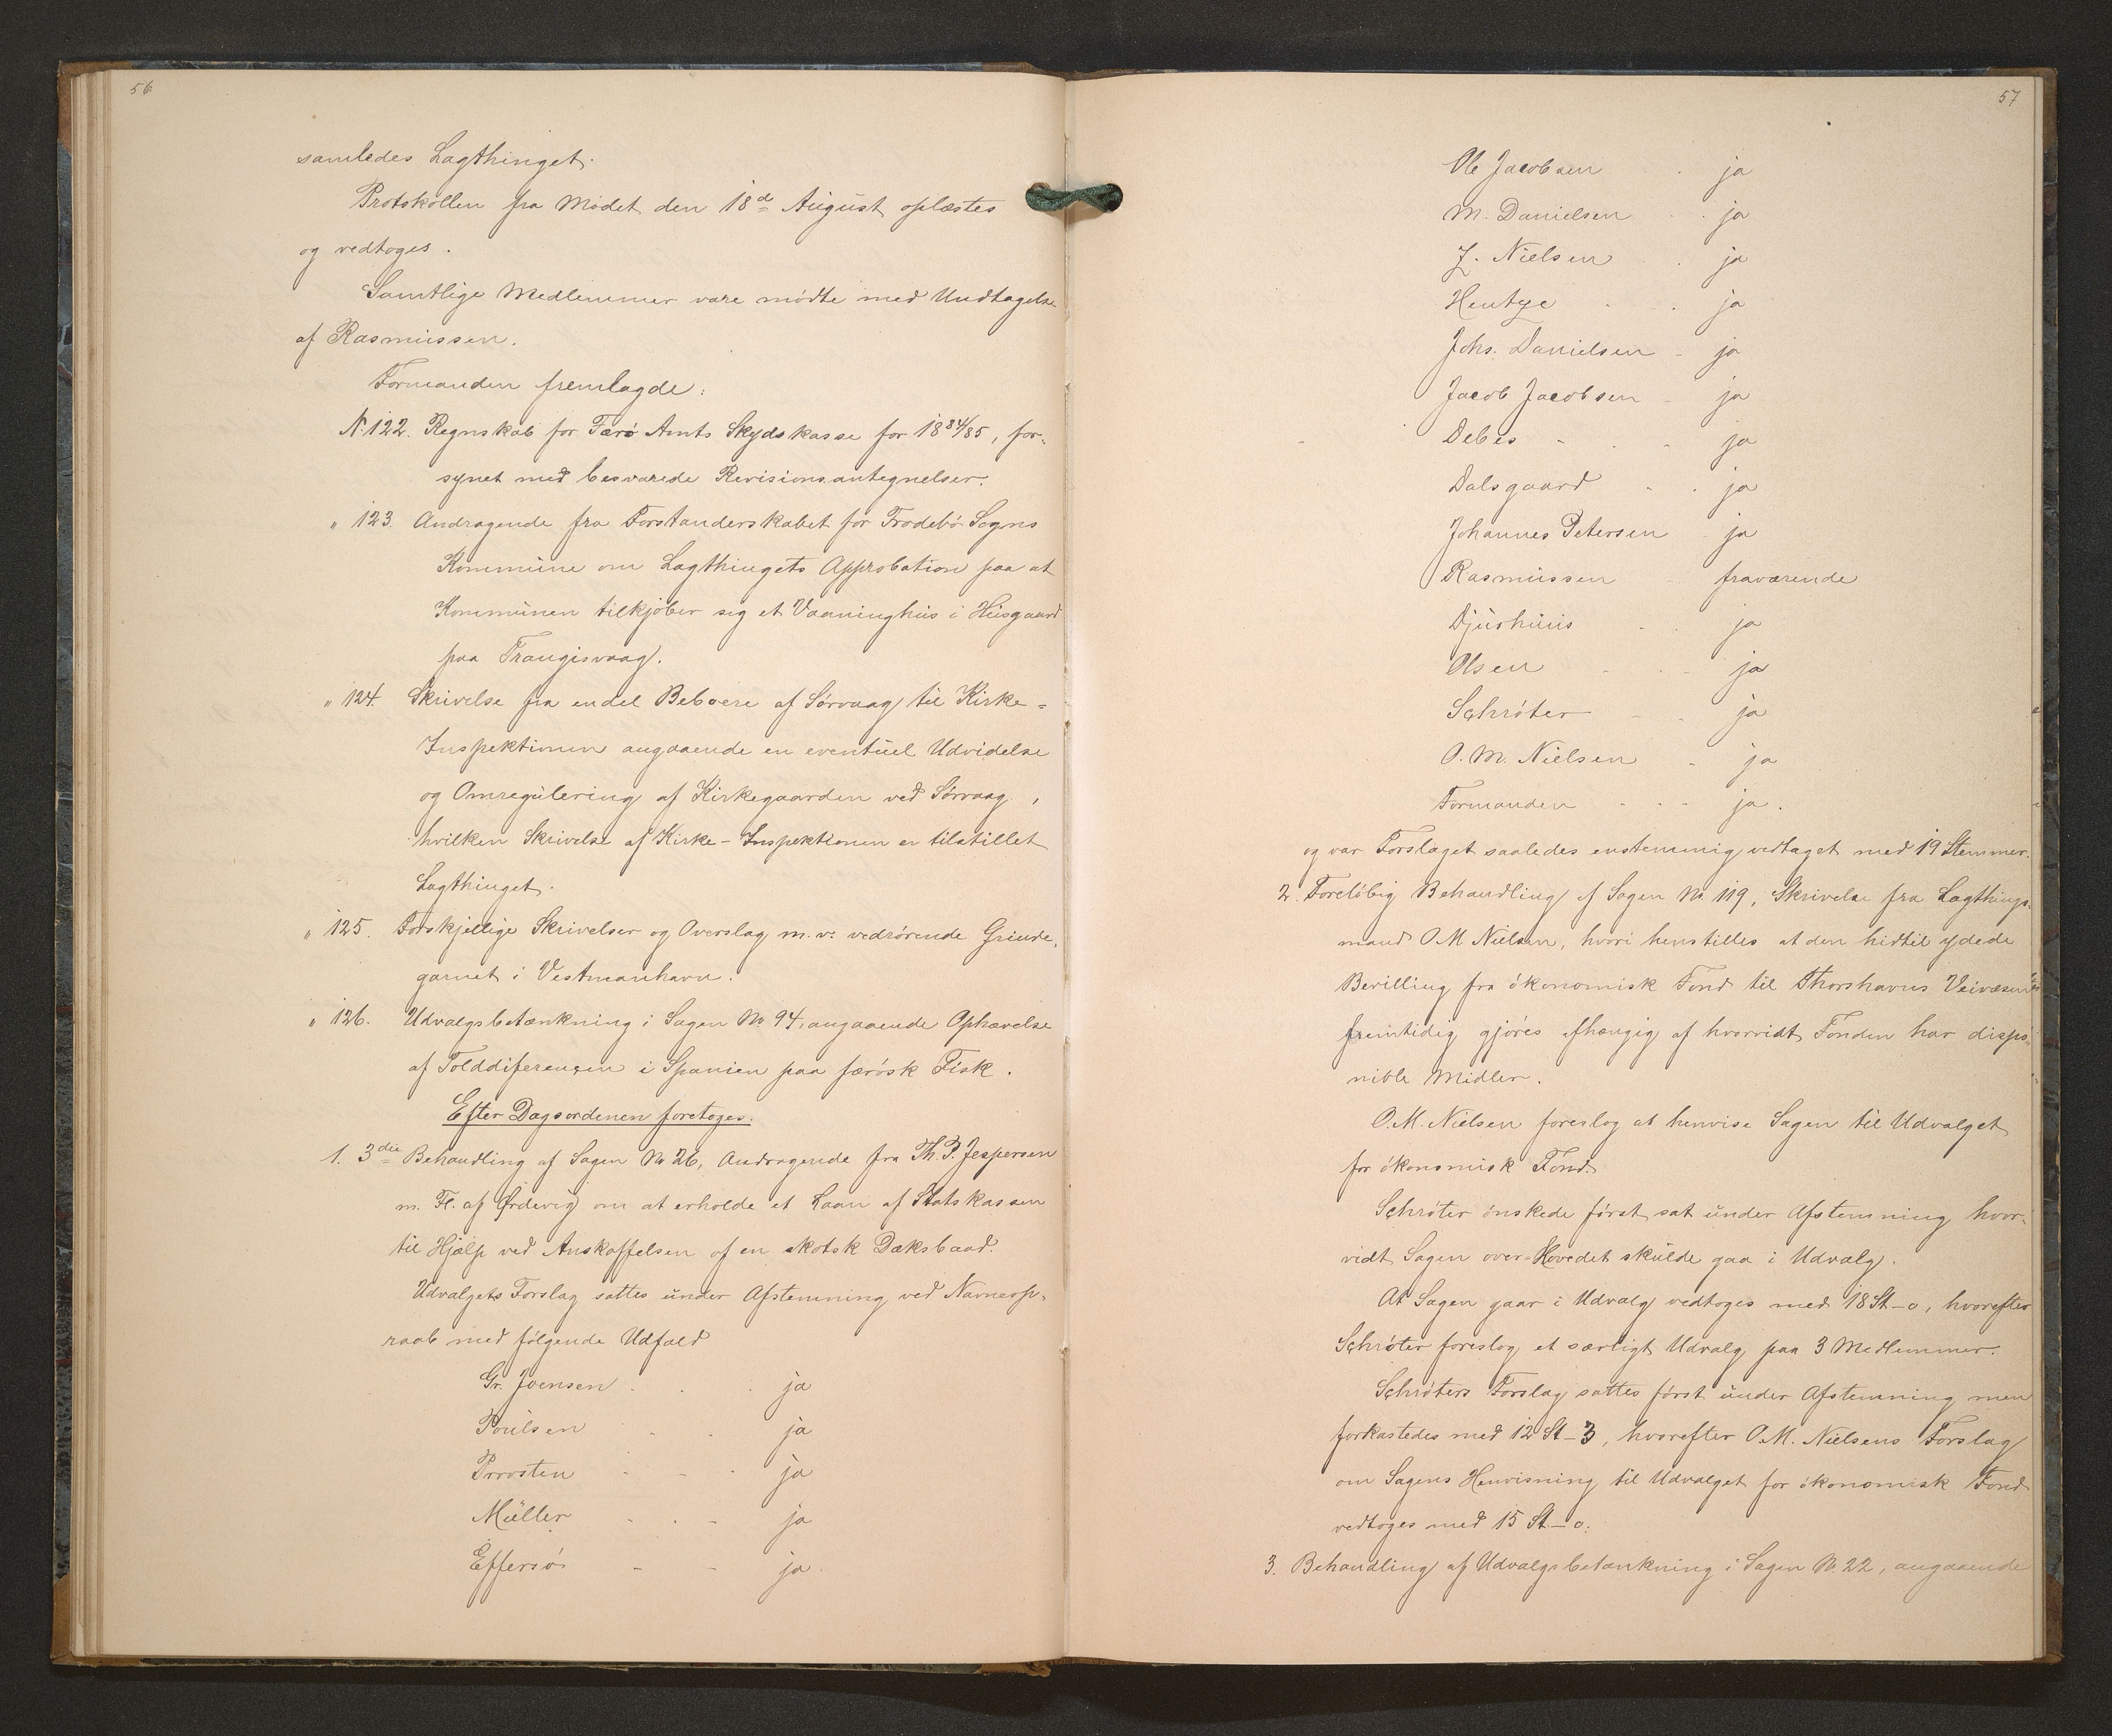 56
samledes Lagthinget.
Protokollen fra Mødet den 18de August oplæstes
og vedtoges.
Samtlige Medlemmer vare mødte med Undtagelse
af Rasmussen.
Formanden fremlagde:
N. 122. Regnskab for Færø Amts Skydskasse for 1884/85, for-
synet med besvarede Revisionsantegnelser.
" 123. Andragende fra Forstanderskabet for Frodebø Sogns
Kommune om Lagthingets Approbation paa at
Kommunen tilkjøber sig et Vaaninghus i Husgaard
paa Trangisvaag.
" 124. Skrivelse fra endel Beboere af Sørvaag til Kirke-
Inspektionen angaaende en eventuel Udvidelse
og Omregulering af Kirkegaarden ved Sørvaag,
hvilken Skrivelse af Kirke-Inspektionen er tilstillet
Lagthinget.
" 125. Forskjellige Skrivelser og Overslag m.v. vedrørende Grinde-
garnet i Vestmanhavn.
" 126. Udvalgsbetænkning i Sagen No 94, angaaende Ophævelse
af Tolddiferensen i Spanien paa færøsk Fisk.
Efter Dagsordenen foretoges.
1. 3die Behandling af Sagen No 26, Andragende fra Th. P. Jespersen
m. Fl. af Ørdevig om at erholde et Laan af Statskassen
til Hjælp ved Anskaffelsen af en skotsk Dæksbaad.
Udvalgets Forslag sattes under Afstemning ved Navneop-
raab med følgende Udfald
Gr. Joensen . . . ja
Poulsen . . ja
Provsten . - . ja
Müller - . - ja
Effersø - - ja.
57
Ole Jacobsen . ja
M. Danielsen . . ja
Z. Nielsen . ja
Hentze . . ja
Johs. Danielsen - ja
Jacob Jacobsen - ja
Debes - . - ja
Dalsgaard - . ja
Johannes Petersen ja
Rasmussen fraværende
Djurhuus - . ja
Olsen - - ja
Schrøter - - ja
O. M. Nielsen - ja
Formanden - - - ja.
og var Forslaget saaledes enstemmig vedtaget med 19 Stemmer.
2. Foreløbig Behandling af Sagen No 119, Skrivelse fra Lagthings-
mand O M Nielsen, hvori henstilles at den hidtil ydede
Bevilling fra økonomisk Fond til Thorshavns Veivæsen
fremtidig gjøres afhængig af hvorvidt Fonden har dispo-
nible Midler.
O. M. Nielsen foreslog at henvise Sagen til Udvalget
for økonomisk Fond.
Schrøter ønskede først sat under Afstemning hvor-
vidt Sagen over-Hovedet skulde gaa i Udvalg.
At Sagen gaar i Udvalg vedtoges med 18 St - o, hvorefter
Schrøter foreslog et særligt Udvalg paa 3 Medlemmer.
Schrøters Forslag sattes først under Afstemning men
forkastedes med 12 St - 3, hvorefter O. M. Nielsens Forslag
om Sagens Henvisning til Udvalget for økonomisk Fond
vedtoges med 15 St. - o.
3. Behandling af Udvalgsbetænkning i Sagen No. 22, angaaende